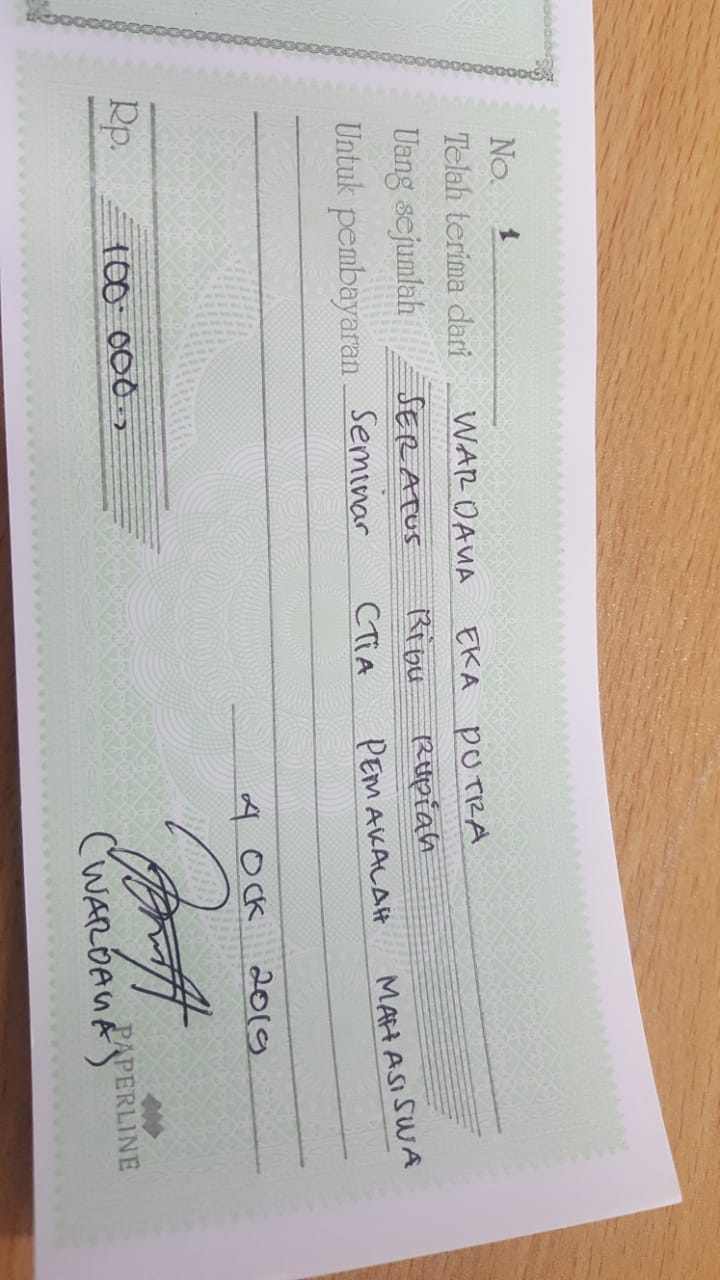 No. 1
Telah terima dari WARDANA EKA PUTRA
Uang sejumlah SERATUS Ribu Rupiah
Untuk pembayaran Seminar CTIA PEMAKALAH MAHASISWA
4 Okt 2019
Rp. 100.000,-
(WARDANA)
PAPERLINE